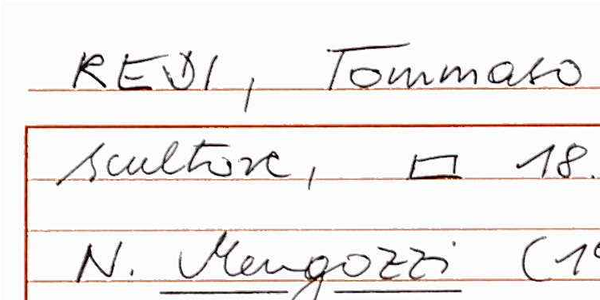 REDI, Tommaso
scultore, □ 18.
N. Mengozzi (19